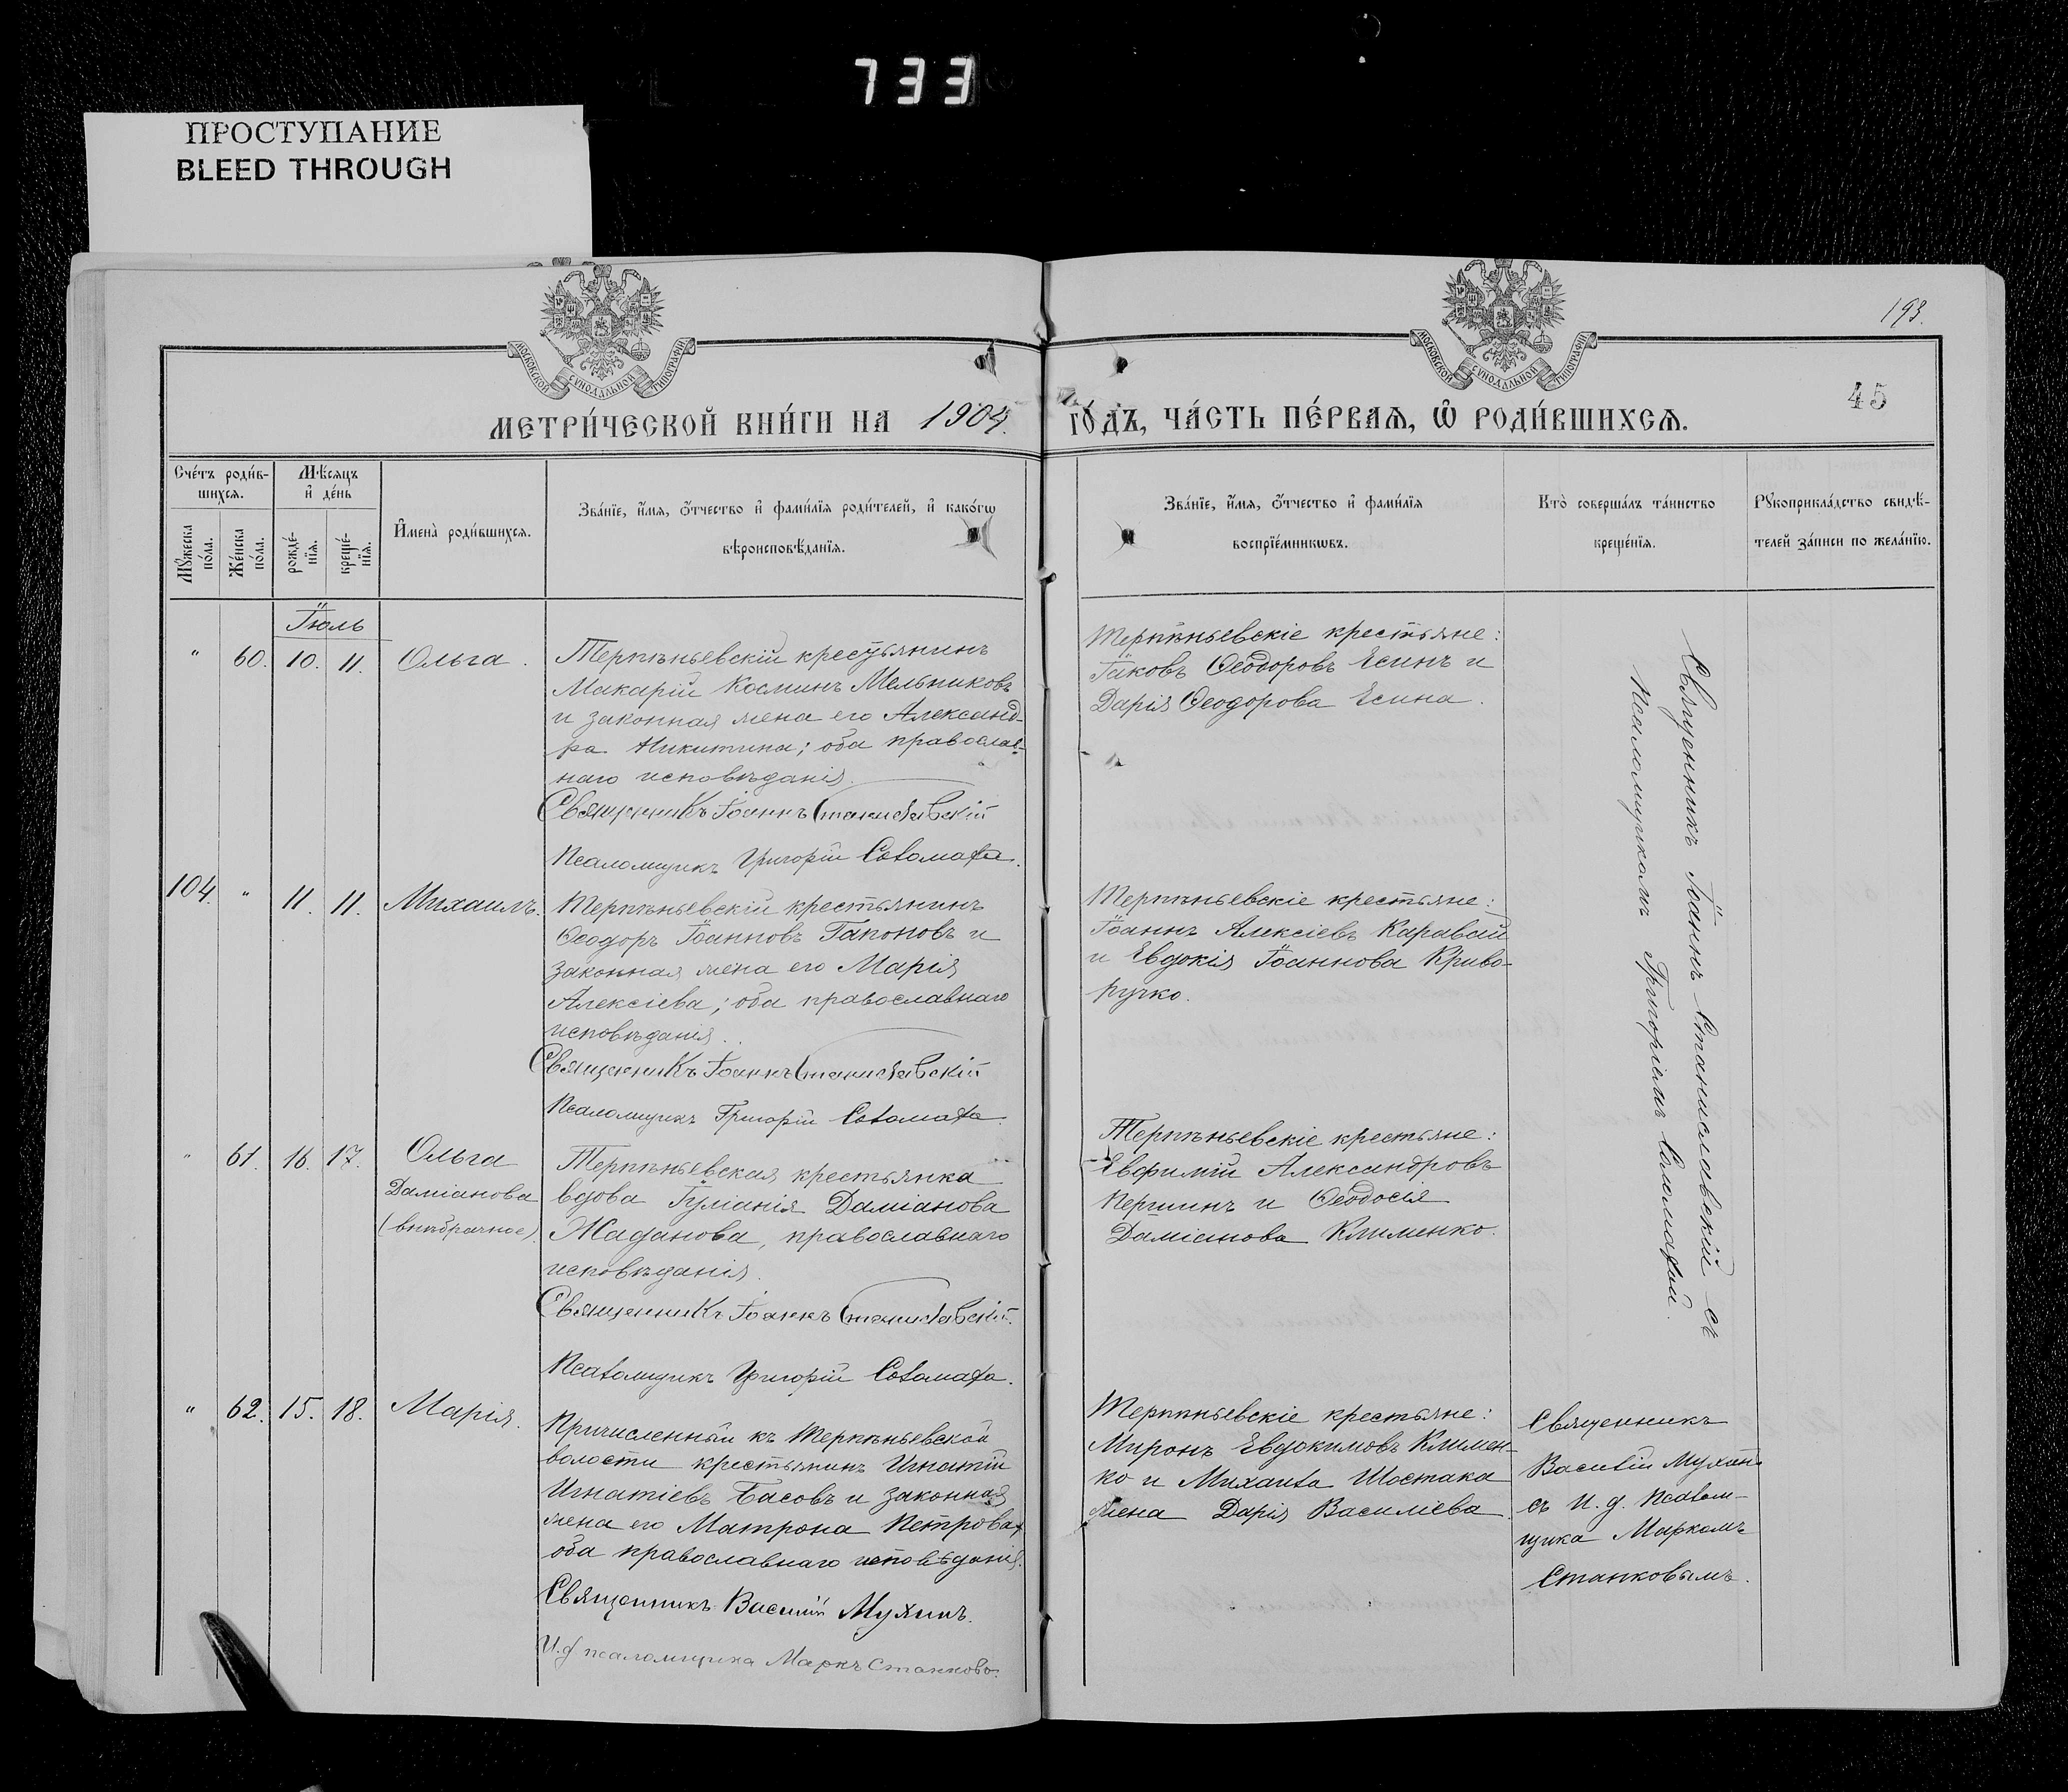 733
ПРОСТУПАНИЕ
BLEED THROUGH
193.
45
МОСКОВСКОЙ СѴНОДАЛЬНОЙ ТИПОГРАФІИ
МОСКОВСКОЙ СѴНОДАЛЬНОЙ ТИПОГРАФІИ
МЕТРИ́ЧЕСКОЙ КНИ́ГИ НА 1904. ГО́ДЪ, ЧА́СТЬ ПЕ́РВАЯ, Ѡ РОДИ́ВШИХСЯ.
Сче́тъ роди́в-
шихся.
Мꙋ́жеска по́ла.
Же́нска по́ла.
Мѣ́сяцъ
и҆ де́нь
рожде́-
нїя.
креще́-
нїя.
И҆мена̀ роди́вшихся.
Зва́нїе, и҆́мя, ѻ҆́тчество и҆ фами́лїя роди́телей, и҆ како́гѡ
вѣроисповѣ́данїя.
Зва́нїе, и҆́мя, ѻ҆́тчество и҆ фами́лїя
воспрїе́мникѡвъ.
Кто̀ соверша́лъ та́инство
креще́нїя.
Рꙋкоприкла́дство свидѣ́-
телей за́писи по жела́нїю.
Іюль
" 60. 10. 11. Ольга.
Терпѣньевскій крестьянинъ
Макарій Косминъ Мельниковъ
и законная жена его Александ-
ра Никитина; оба православ-
наго исповѣданія.
Священникъ Іоаннъ Станиславскій
Псаломщикъ Григорій Соломаха.
Терпѣньевскіе крестьяне:
Іаковъ Ѳеодоровъ Есинъ и
Дарія Ѳеодорова Есина.
Священникъ Іоаннъ Станиславскій съ
Псаломщикомъ Григоріемъ Соломахой.
104. " 11. 11. Михаилъ.
Терпѣньевскій крестьянинъ
Ѳеодоръ Іоанновъ Гапоновъ и
законная жена его Марія
Алексіева; оба православнаго
исповѣданія.
Священникъ Іоаннъ Станиславскій
Псаломщикъ Григорій Соломаха.
Терпѣньевскіе крестьяне:
Іоаннъ Алексіевъ Каравай
и Евдокія Іоаннова Криво-
ручко.
" 61. 16. 17. Ольга
Даміанова
(внѣбрачное).
Терпѣньевская крестьянка
вдова Іуліанія Даміанова
Жаданова, православнаго
исповѣданія.
Священникъ Іоаннъ Станиславскій.
Псаломщикъ Григорій Соломаха.
Терпѣньевскіе крестьяне:
Евфимій Александровъ
Першинъ и Ѳеодосія
Даміанова Клименко.
" 62. 15. 18. Марія.
Причисленный къ Терпѣньевской
волости крестьянинъ Игнатій
Игнатіевъ Басовъ и законная
жена его Матрона Петрова,
оба православнаго исповѣданія.
Священникъ Василій Мухинъ.
И.д псаломщика Маркъ Станковъ.
Терпѣньевскіе крестьяне:
Миронъ Евдокимовъ Климен-
ко и Михаила Шостака
жена Дарія Василіева.
Священникъ
Василій Мухинъ
съ и.д. псалом-
щика Маркомъ
Станковымъ.